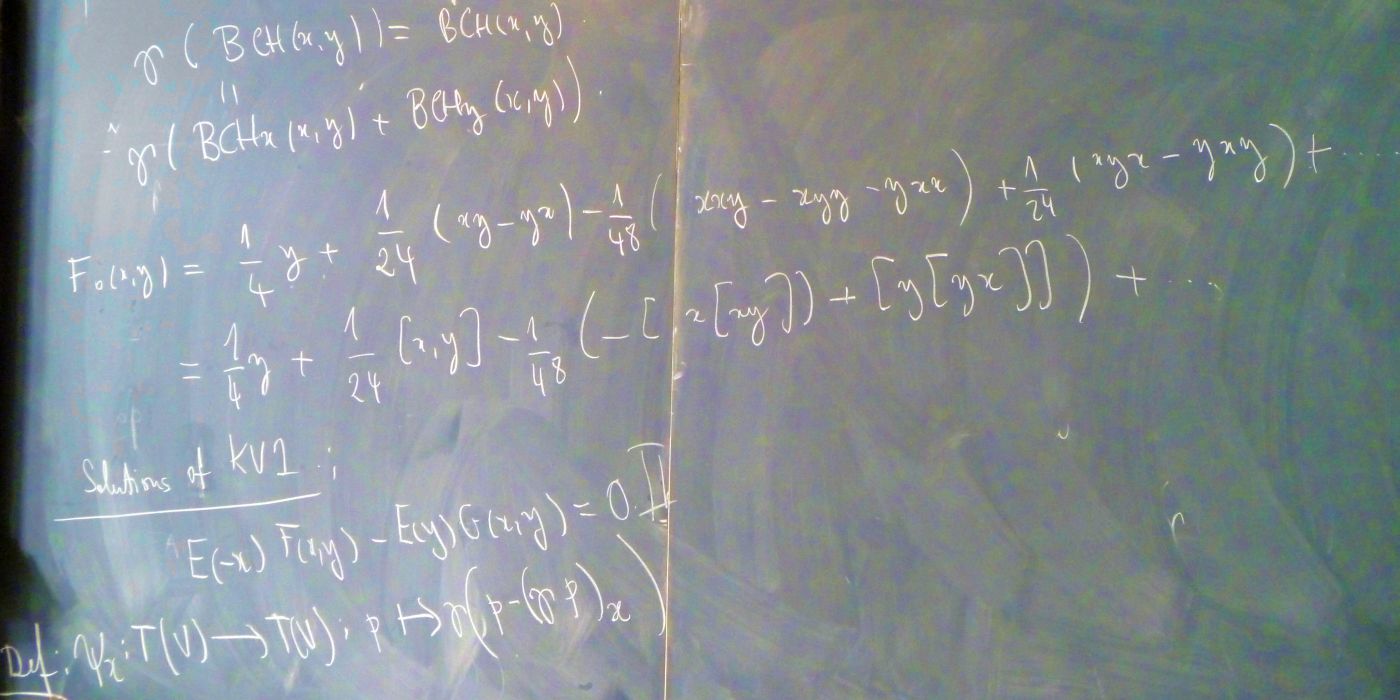 γ ( BCH(x,y) ) = BCH(x,y)
||
= γ ( BCHx (x,y) + BCHy (x,y) ) .
F₀(x,y) = 1/4 y + 1/24 (xy - yx) - 1/48 ( xxy - xyy - yxx ) + 1/24 (xyx - yxy) + .....
= 1/4 y + 1/24 [x,y] - 1/48 ( - [x[xy]]) + [y[yx]]] ) + ....
Solutions of KV1 :
E(-x) F(x,y) - E(y) G(x,y) = 0.
Def: Ψx : T(V) → T(V) ; p ↦ γ(p - (γ p)x )